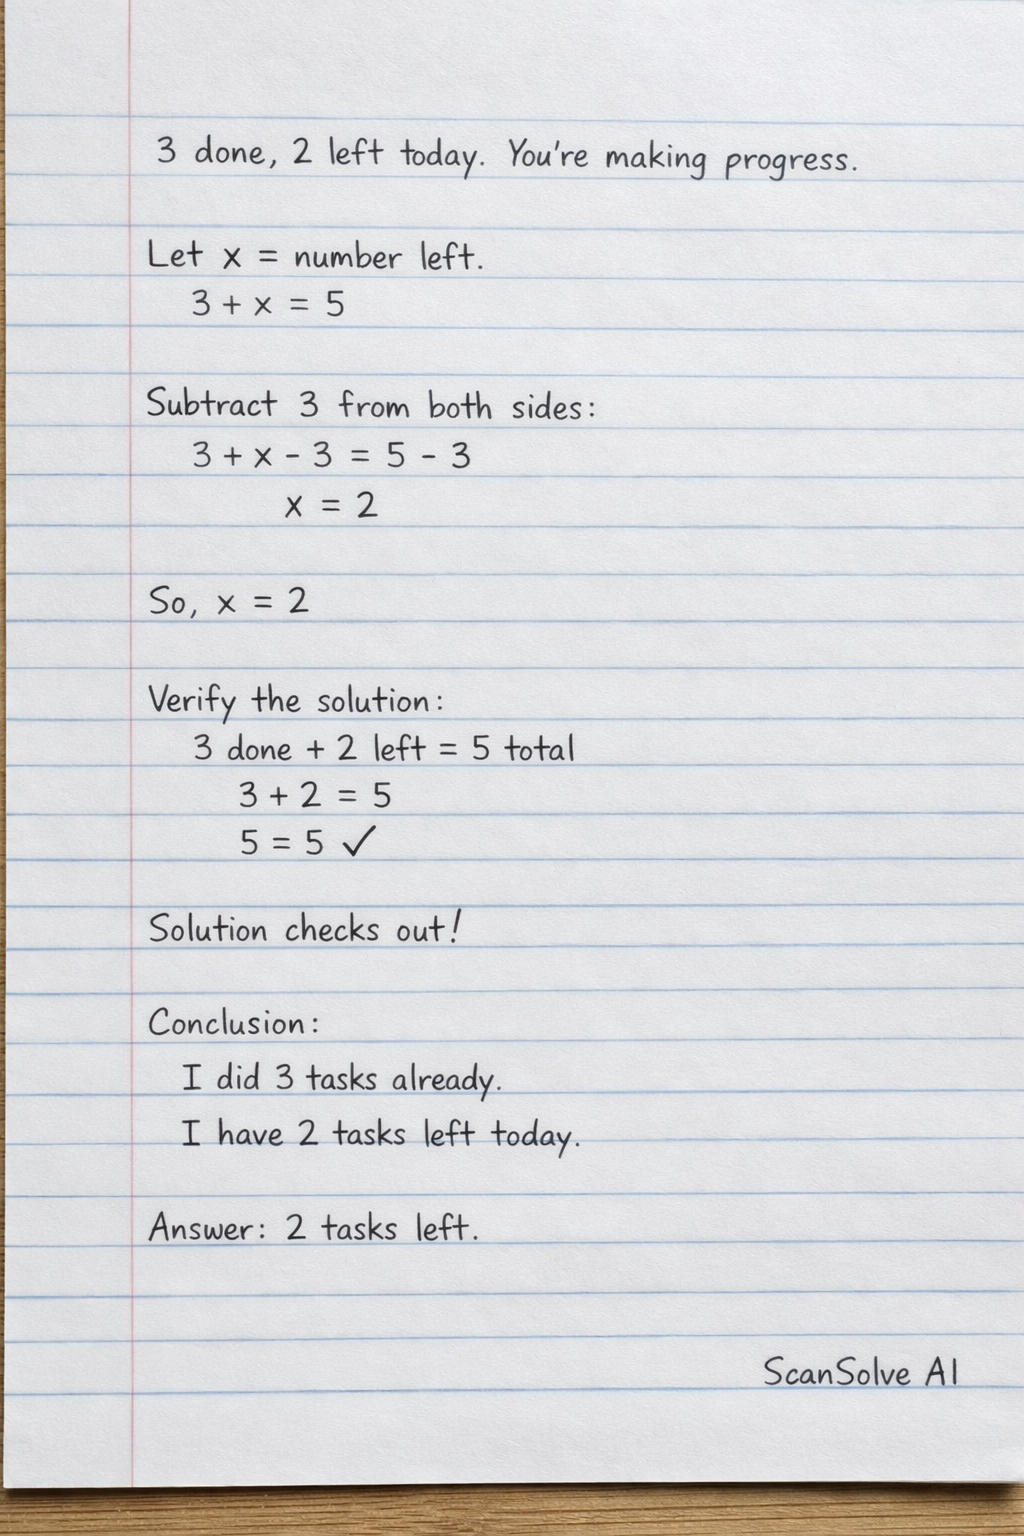 3 done, 2 left today. You're making progress.
Let x = number left.
3 + x = 5
Subtract 3 from both sides:
3 + x - 3 = 5 - 3
x = 2
So, x = 2
Verify the solution:
3 done + 2 left = 5 total
3 + 2 = 5
5 = 5 ✓
Solution checks out!
Conclusion:
I did 3 tasks already.
I have 2 tasks left today.
Answer: 2 tasks left.
ScanSolve AI